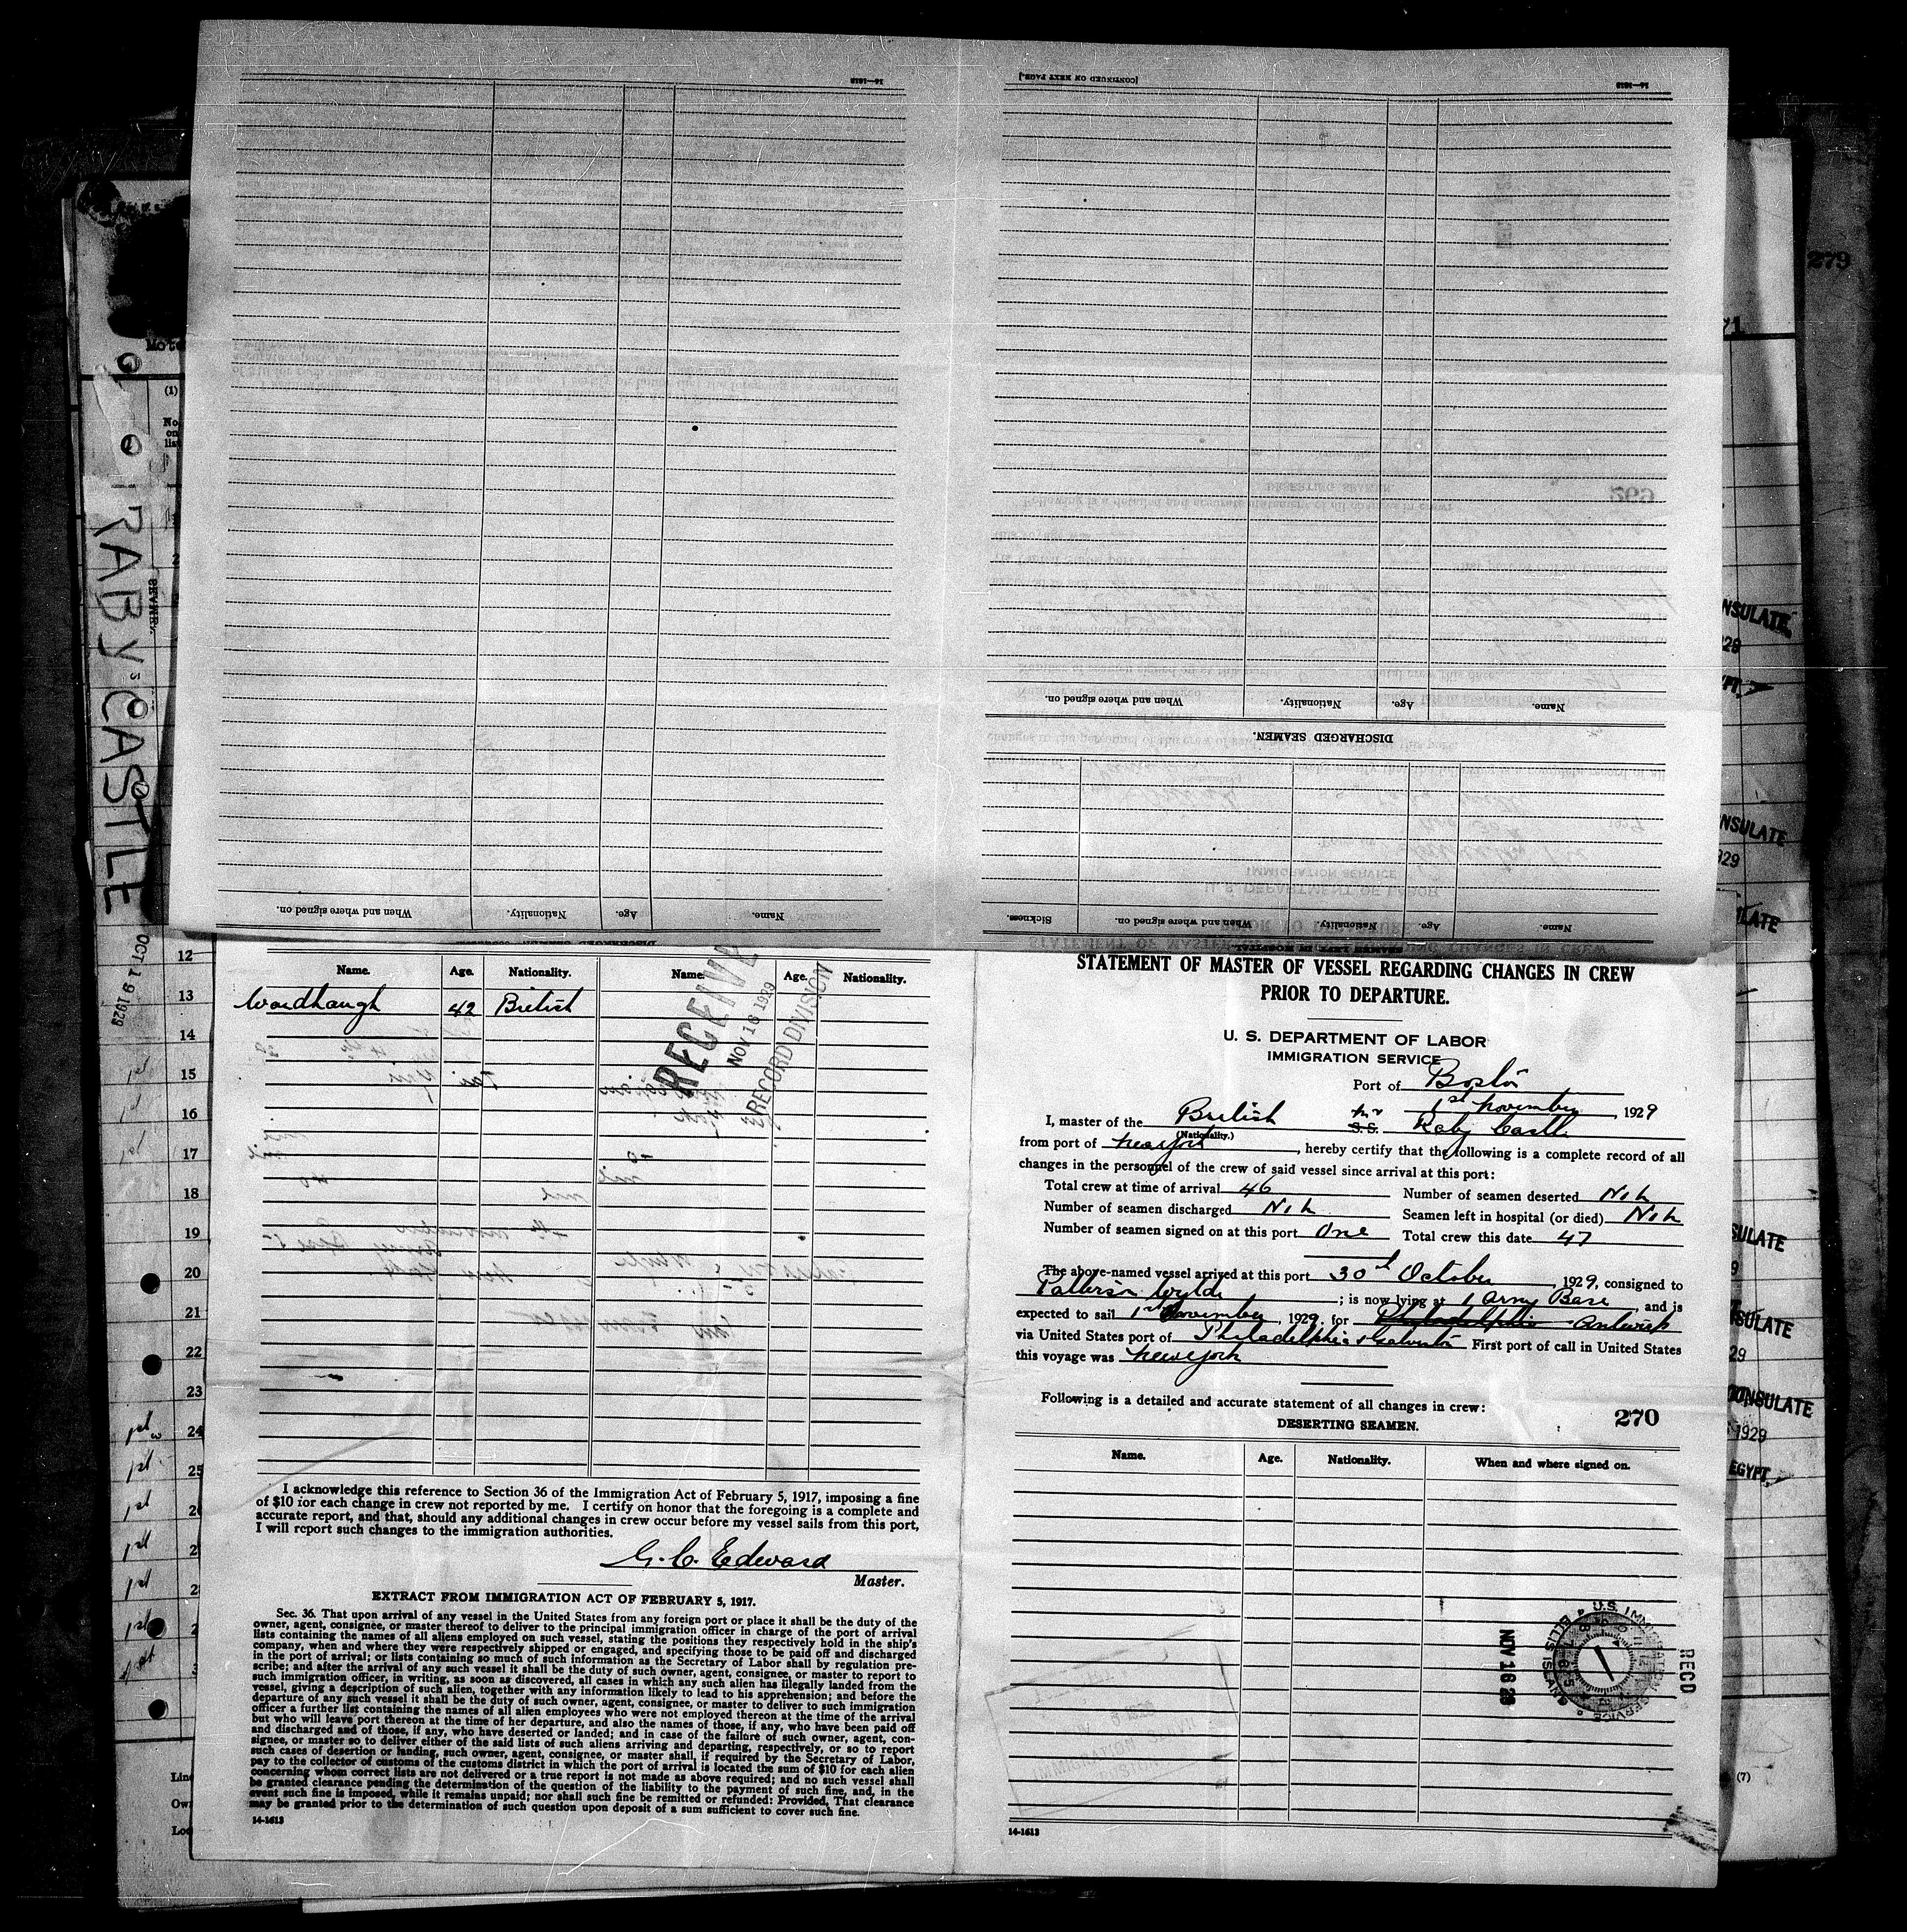 14—1613
[CONTINUED ON NEXT PAGE.]
14—1613
279
71
Name.
Age.
Nationality.
When and where signed on.
DISCHARGED SEAMEN.
Name.
Age.
Nationality.
When and where signed on.
Name.
Age.
Nationality.
When and where signed on.
Sickness.
RABY CASTLE
OCT 19 1929
(1)
No.
on
list
12
13
14
15
16
17
18
19
20
21
22
23
24
25
Name. Age. Nationality. Name. Age. Nationality.
Wardhaugh 42 British
RECEIVED
NOV 16 1929
RECORD DIVISION
I acknowledge this reference to Section 36 of the Immigration Act of February 5, 1917, imposing a fine
of $10 for each change in crew not reported by me. I certify on honor that the foregoing is a complete and
accurate report, and that, should any additional changes in crew occur before my vessel sails from this port,
I will report such changes to the immigration authorities.
G. C. Edward
Master.
EXTRACT FROM IMMIGRATION ACT OF FEBRUARY 5, 1917.
Sec. 36. That upon arrival of any vessel in the United States from any foreign port or place it shall be the duty of the
owner, agent, consignee, or master thereof to deliver to the principal immigration officer in charge of the port of arrival
lists containing the names of all aliens employed on such vessel, stating the positions they respectively hold in the ship's
company, when and where they were respectively shipped or engaged, and specifying those to be paid off and discharged
in the port of arrival; or lists containing so much of such information as the Secretary of Labor shall by regulation pre-
scribe; and after the arrival of any such vessel it shall be the duty of such owner, agent, consignee, or master to report to
such immigration officer, in writing, as soon as discovered, all cases in which any such alien has illegally landed from the
vessel, giving a description of such alien, together with any information likely to lead to his apprehension; and before the
departure of any such vessel it shall be the duty of such owner, agent, consignee, or master to deliver to such immigration
officer a further list containing the names of all alien employees who were not employed thereon at the time of the arrival
but who will leave port thereon at the time of her departure, and also the names of those, if any, who have been paid off
and discharged and of those, if any, who have deserted or landed; and in case of the failure of such owner, agent, con-
signee, or master so to deliver either of the said lists of such aliens arriving and departing, respectively, or so to report
such cases of desertion or landing, such owner, agent, consignee, or master shall, if required by the Secretary of Labor,
pay to the collector of customs of the customs district in which the port of arrival is located the sum of $10 for each alien
concerning whom correct lists are not delivered or a true report is not made as above required; and no such vessel shall
be granted clearance pending the determination of the question of the liability to the payment of such fine, and, in the
event such fine is imposed, while it remains unpaid; nor shall such fine be remitted or refunded: Provided, That clearance
may be granted prior to the determination of such question upon deposit of a sum sufficient to cover such fine.
14-1613
STATEMENT OF MASTER OF VESSEL REGARDING CHANGES IN CREW
PRIOR TO DEPARTURE.
U. S. DEPARTMENT OF LABOR
IMMIGRATION SERVICE
Port of Boston
1st November, 1929
I, master of the British S.S. Raby Castle
(Nationality.)
from port of New York, hereby certify that the following is a complete record of all
changes in the personnel of the crew of said vessel since arrival at this port:
Total crew at time of arrival 46 Number of seamen deserted Nil
Number of seamen discharged Nil Seamen left in hospital (or died) Nil
Number of seamen signed on at this port One Total crew this date 47
The above-named vessel arrived at this port 30th October, 1929, consigned to
Patterson Wylde; is now lying at 1 Army Base, and is
expected to sail 1st November, 1929, for Philadelphia Antwerp
via United States port of Philadelphia & Galveston First port of call in United States
this voyage was New York
Following is a detailed and accurate statement of all changes in crew:
DESERTING SEAMEN.
270
Name. Age. Nationality. When and where signed on.
NOV 16 29
U.S. IMMIGRATION SERVICE ELLIS ISLAND
RECD
14-1613
(7)